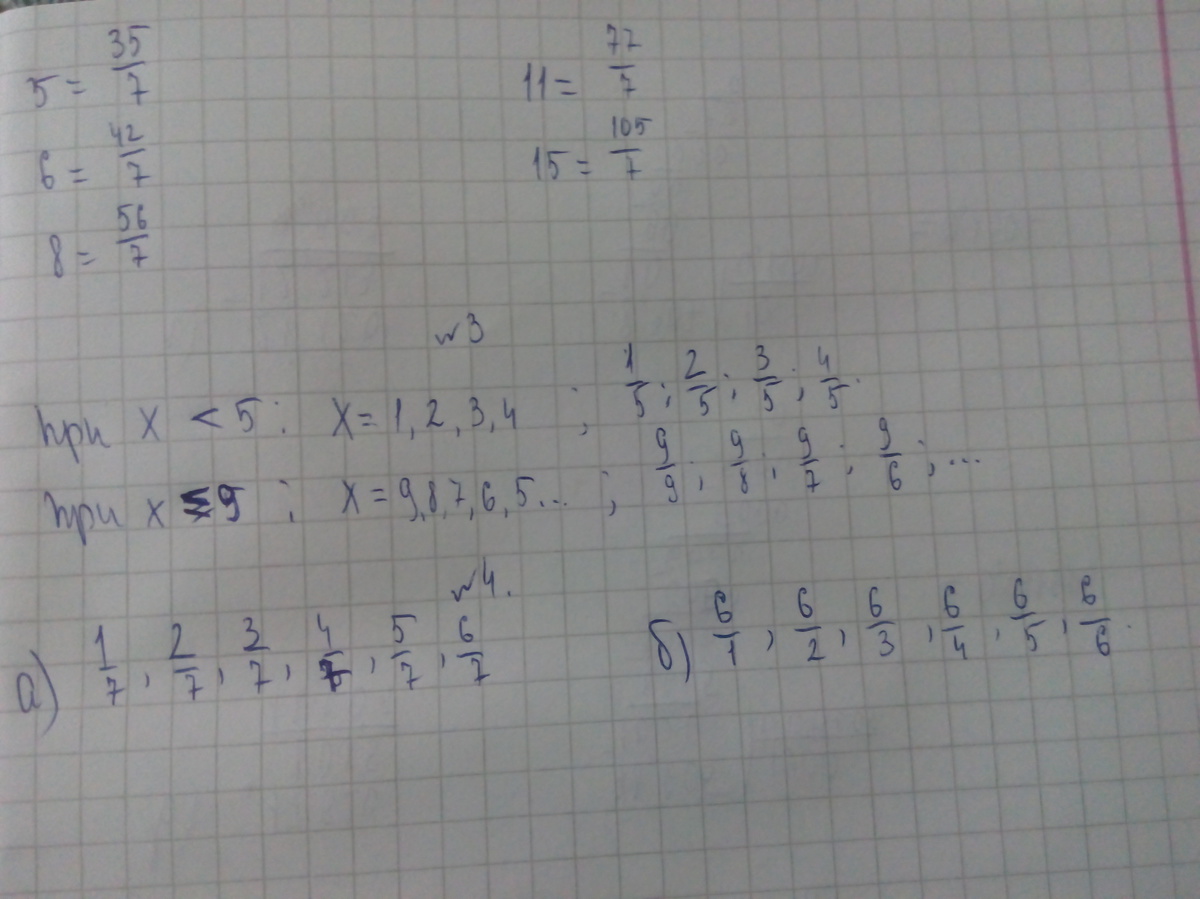 5 = 35/7 11 = 77/7
6 = 42/7 15 = 105/7
8 = 56/7
№3
при x < 5 : x = 1, 2, 3, 4 ; 1/5 ; 2/5 ; 3/5 ; 4/5.
при x ≤ 9 ; x = 9, 8, 7, 6, 5... ; 9/9 ; 9/8 ; 9/7 ; 9/6 ; ...
№4.
а) 1/7 , 2/7 , 3/7 , 4/7 , 5/7 , 6/7 б) 6/1 , 6/2 , 6/3 , 6/4 , 6/5 , 6/6.